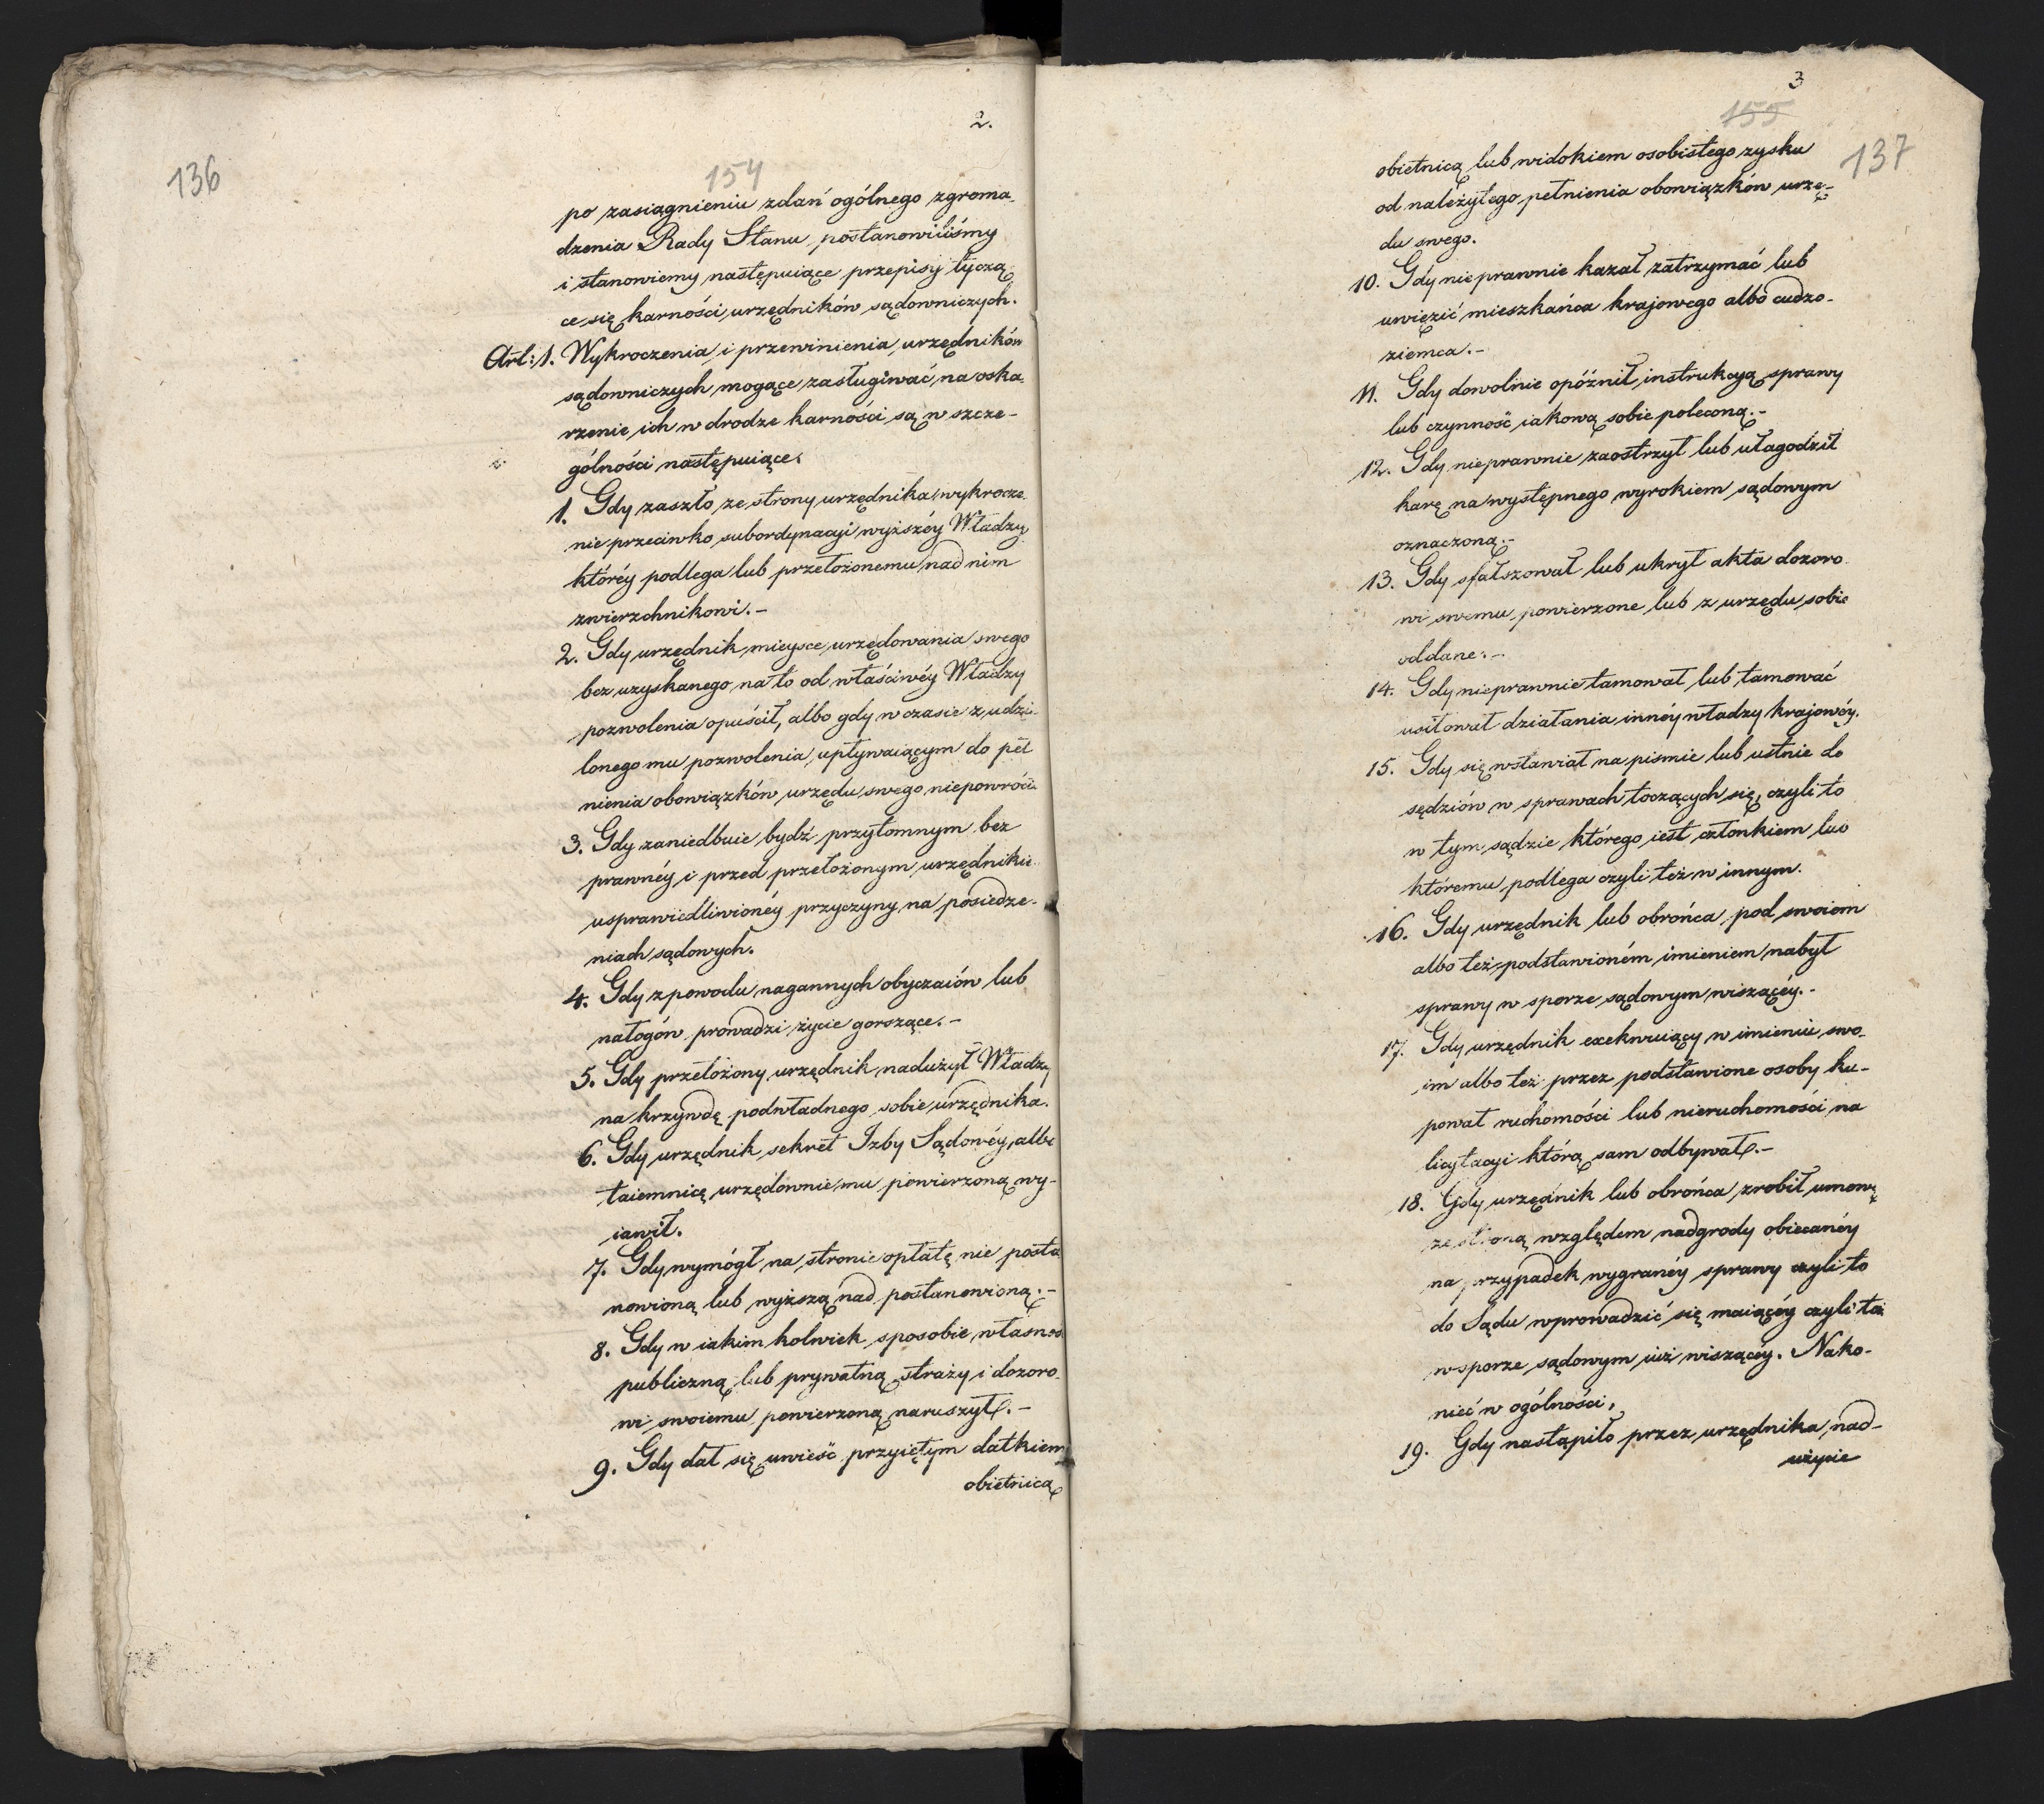 2.
136
154
po zasiągnieniu zdań ogólnego zgroma-
dzenia Rady Stanu, postanowiliśmy
i stanowiemy następuiące przepisy tyczą
ce się karności urzędników sądowniczych.
Art: 1. Wykroczenia i przewinienia urzędników
sądowniczych mogące zasługiwać na oska-
rzenie ich w drodze karności są w szcze-
gólności następuiące.
1. Gdy zaszło ze strony urzędnika wykrocze-
nie przeciwko subordynacyi wyższéy Władzy
któréy podlega lub przełożonemu nad nim
zwierzchnikowi.-
2. Gdy urzędnik mieysce urzędowania swego
bez uzyskanego na to od właściwéy Władzy
pozwolenia opuścił, albo gdy w czasie z udzie-
lonego mu pozwolenia upływaiącym do peł
nienia obowiązków urzędu swego niepowróci
3. Gdy zaniedbuie bydź przytomnym bez
prawnéy i przed przełożonym urzędnikie
usprawiedliwionéy przyczyny na posiedze-
niach sądowych.
4. Gdy z powodu nagannych obyczaiów lub
nałogów prowadzi życie gorszące.-
5. Gdy przełożony urzędnik nadużył Władzy
na krzywdę podwładnego sobie urzędnika.
6. Gdy urzędnik sekret Izby Sądowéy albo
taiemnicę urzędownie mu powierzoną wy-
iawił.
7. Gdy wymógł na stronie opłatę nie posta
nowioną lub wyższą nad postanowioną.-
8. Gdy w iakim kolwiek sposobie własnoś
publiczną lub prywatną straży i dozoro-
wi swoiemu powierzoną naruszył.-
9. Gdy dał się uwieść przyiętym datkiem
obietnicą
3
155
137
obietnicą lub widokiem osobistego zysku
od należytego pełnienia obowiązków urzę-
du swego.
10. Gdy nieprawnie kazał zatrzymać lub
uwięzić mieszkańca krajowego albo cudzo-
ziemca.-
11. Gdy dowolnie opóźnił instrukcyą sprawy
lub czynność iakową sobie poleconą.-
12. Gdy nieprawnie zaostrzył lub ułagodził
karę na występnego wyrokiem sądowym
oznaczoną.-
13. Gdy sfałszował lub ukrył akta dozoro
wi swemu powierzone lub z urzędu sobie
oddane.-
14. Gdy nieprawnie tamował lub tamować
usiłował działania innéy władzy krajowéy.
15. Gdy się wstawiał na pismie lub ustnie do
sędziów w sprawach toczących się, czyli to
w tym sądzie którego iest członkiem lub
któremu podlega czyli też w innym.
16. Gdy urzędnik lub obrońca pod swoiem
albo też podstawioném imieniem nabył
sprawy w sporze sądowym wiszącéy.-
17. Gdy urzędnik exekwuiący w imieniu swo-
im albo też przez podstawione osoby ku-
pował ruchomości lub nieruchomości na
licytacyi którą sam odbywał.-
18. Gdy urzędnik lub obrońca zrobił umowę
ze stroną względem nadgrody obiecanéy
na przypadek wygranéy sprawy czyli to
do Sądu wprowadzić się maiącéy czyli też
w sporze sądowym iuż wiszącéy. Nako-
niec w ogólności,
19. Gdy nastąpiło przez urzędnika nad-
użycie